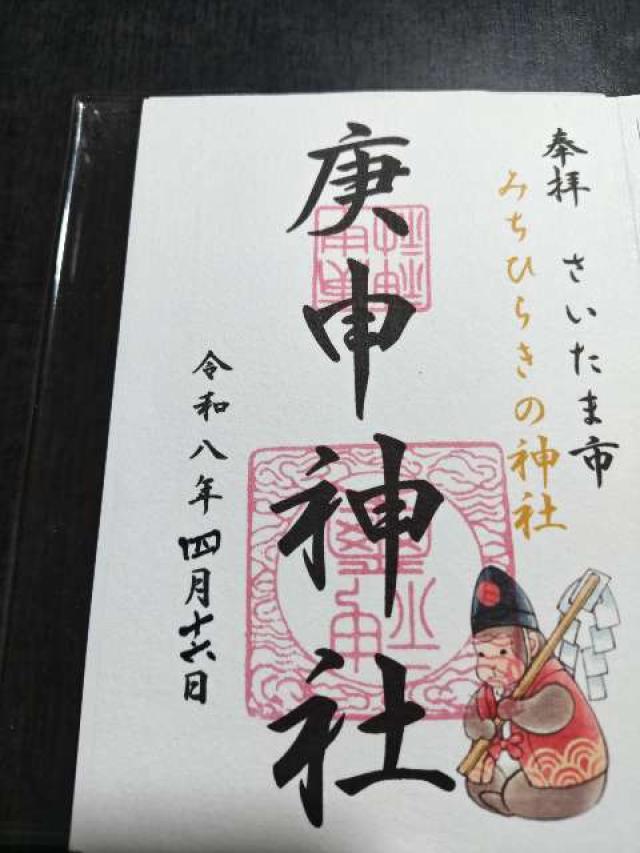 奉拝　さいたま市
みちひらきの神社
庚申神社
令和八年四月十六日